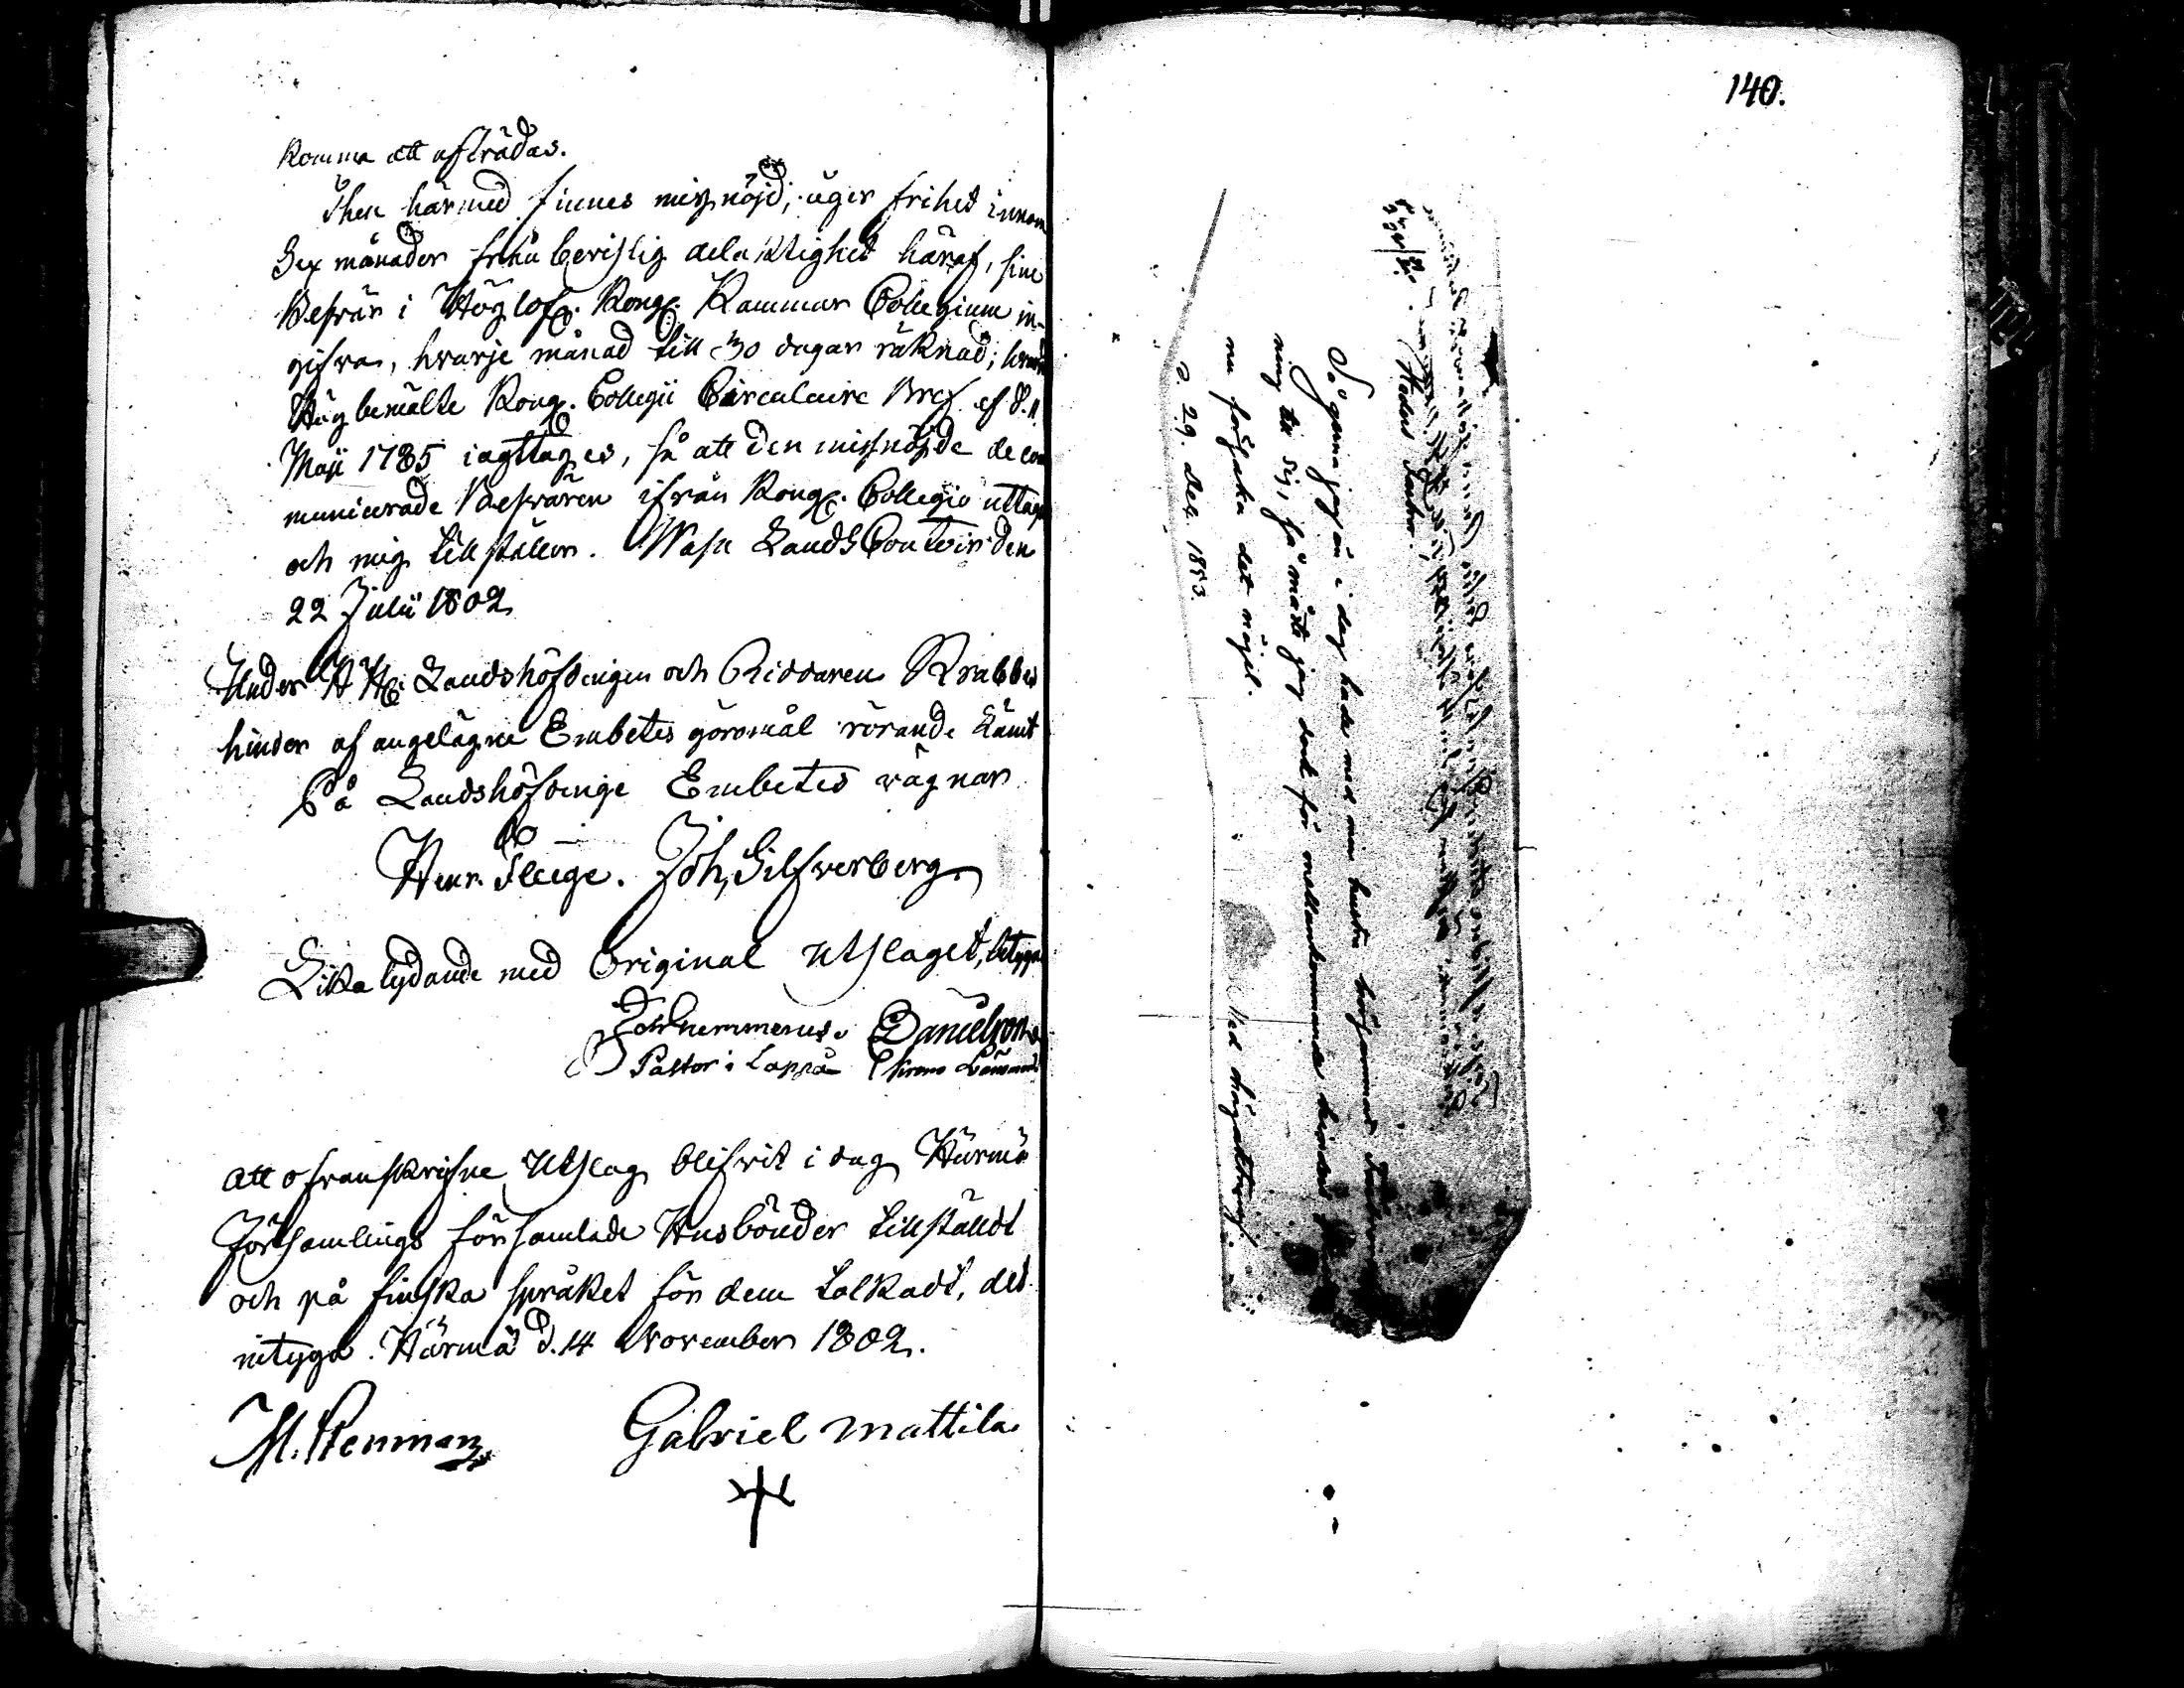 komma att afträdas.
Then härmed finnes misznöjd, äger frihet innom
Sex månader från bevislig delaktighet häraf, sine
Besvär i Höglofl. Kongl. Kammar Collegium in-
gifva, hvarje månad till 30 dagar räknad;
Högbemälte Kongl. Collegii Circulaire Bref af d. 11
Maji 1785 iagttages, så att den missnöjde de com
municerade Besvären ifrån Kongl. Collegio uttager
och mig tillställer. Wasa Lands Contoir den
22 Julii 1802
Under H H: Landshöfdingen och Riddaren Krabbes
hinder af angelägne Embetes göromål rörande Länet
På Landshöfdinge Embetes vägnar
Henr. Flege. Joh. Silfverberg
Lika lydande med Original Utslaget, betyga
Danielson
Pastor i Lappå Krono Länsman
att ofvanskrifne Utslag blifvit i dag Härmä
Församlings församlade Husbönder tillstäldt
och på finska språket för dem tolkadt, det
intyga. Härmä d. 14 November 1802.
M. Stenman Gabriel Mattila
140.
Heders Farbror
Så gerna jag än i dag hade med min hustru
ning till sig, så måste jag dock för mellankommande hinder
nu försaka det nöjet.
Med högaktning
d. 29. Dec. 1853.